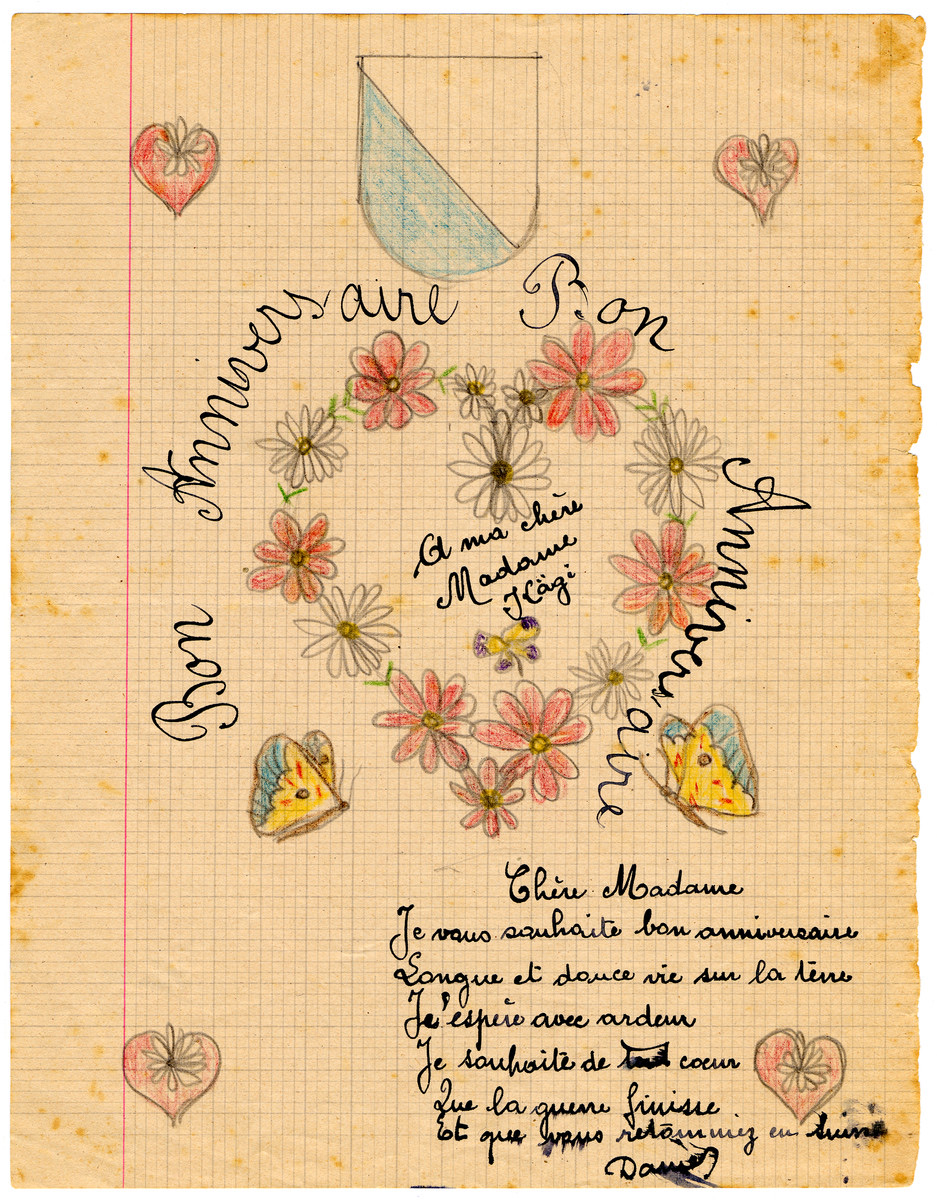 Bon Anniversaire
Bon Anniversaire
A ma chère
Madame
Kägi
Chère Madame
Je vous souhaite bon anniversaire
Longue et douce vie sur la terre
Je l'espère avec ardeur
Je souhaite de tout cœur
Que la guerre finisse
Et que vous retourniez en